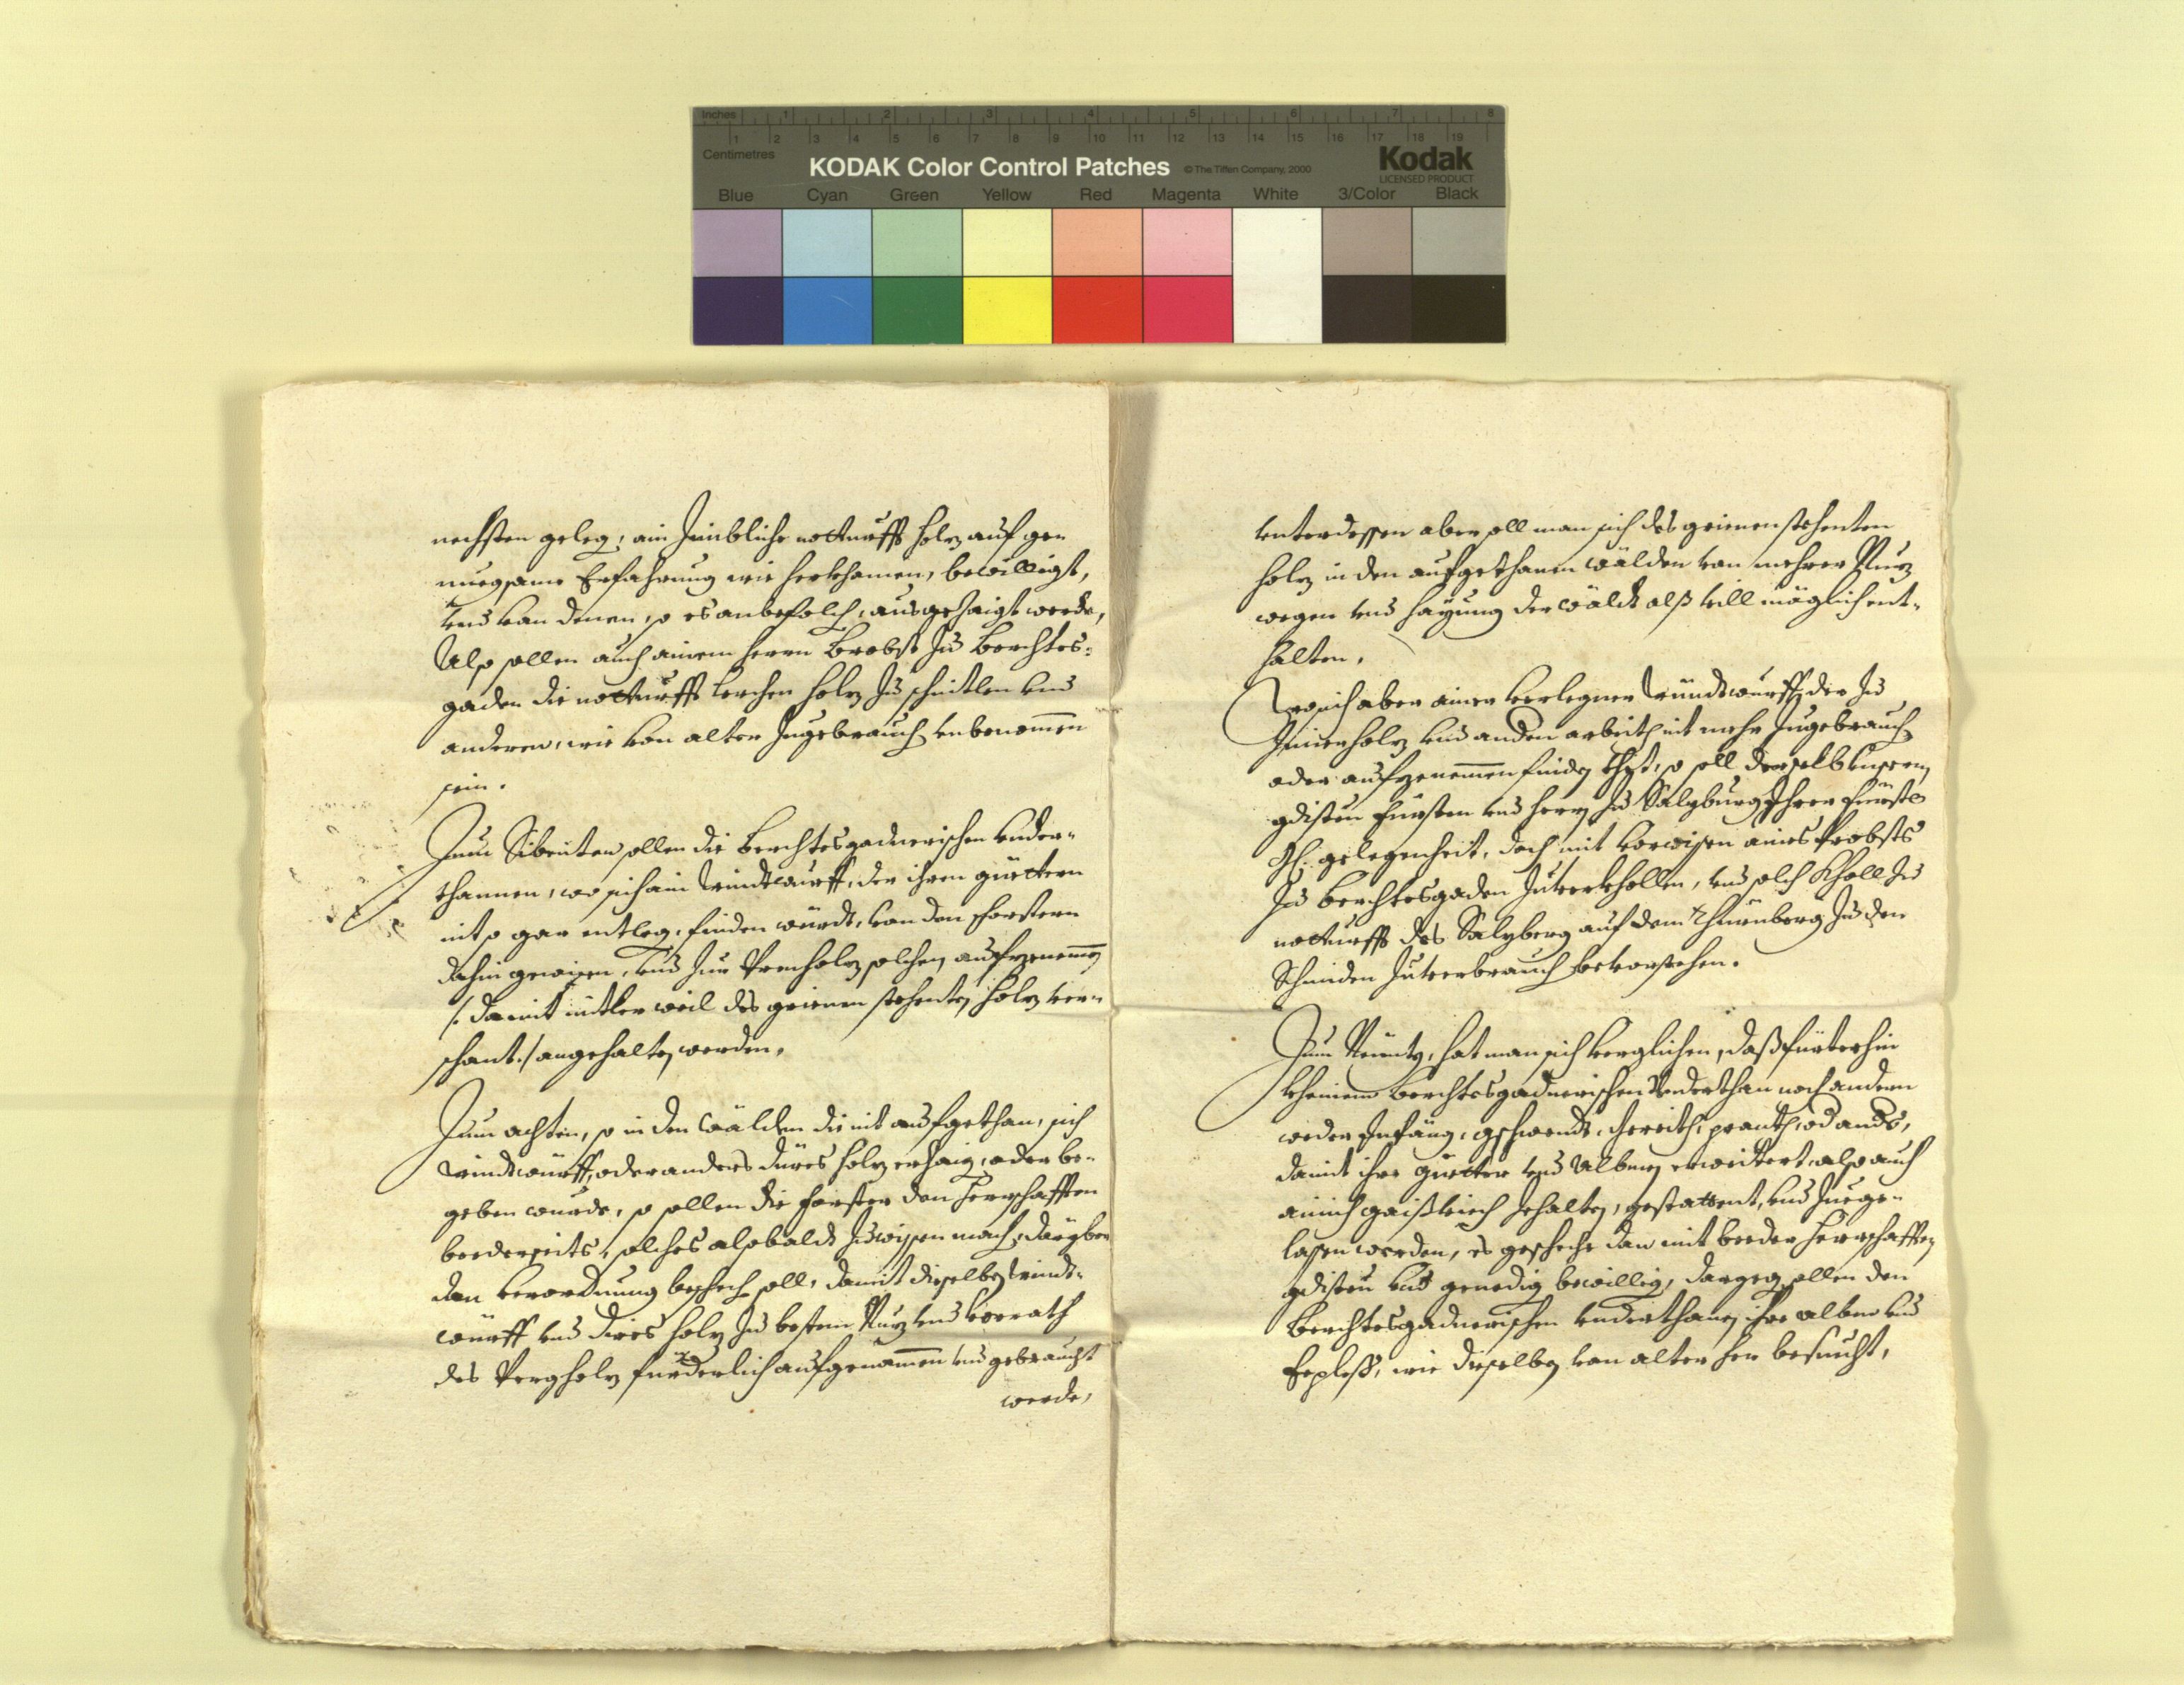 Inches 1 2 3 4 5 6 7 8
1 2 3 4 5 6 7 8 9 10 11 12 13 14 15 16 17 18 19
Centimetres
KODAK Color Control Patches © The Tiffen Company, 2000 Kodak
LICENSED PRODUCT
Blue Cyan Green Yellow Red Magenta White 3/Color Black
nechsten geleg, ain zimbliche notturfft holz auf gen
nuegsame Erfahrung wie herkhomen, bewilligt,
vnd von denen, so es anbefolch, ausgezaigt werde,
Also sollen auch ainem herrn Brobst zu Berchtes:
gaden die notturfft Lerchen holz zu schintlen vnd
anderen, wie von alter zugebrauch vnbenommen
sein.
Zum Sibenten sollen die Berchtesgadnerischen vnder¬
thannen, wo sich ain windtwurff, der ihren guettern
nit so gar entleg, finden würdt, von den forstern
dahin gewisen, vnd zur Prenholz solchen aufzenemen
/: damit mitler weil des grienen stehenten holz ver¬
schant :/ angehalten werden.
Zum achten, so in den Wälden die nit aufgethan, sich
windtwürff, oder anders dürs holz erzaig, oder be¬
geben wurde, so sollen die forster den herrschafften
beederseits, solches alsbaldt zuwissen mach, darüber
dan verordnung beschech soll, damit dieselben windt¬
würff vnd dirs holz zu bestem Nuz vnd vorrath
des Pergholz fürderlich aufgenommen vnd gebraucht
werde,
vnterdessen aber soll man sich des grienen stehenten
holz in den aufgethanen wälden von mehrer Nuz
wegen vnd hayung der wäldt alß vill möglich ent¬
halten.
Wo sich aber ainer verlegner Windtwurff, der zu
holz vnd andern arbeith nit mehr zugebrauch
oder aufzenemmen finden thet, so soll derselb vnserm
gdisten fürsten vnd herrn zu Salzburg Ihrer fürstl:
Gl: gelegenheit, doch mit vorwissen aines Probsts
zu Berchtesgaden zuverkhollen, vnd solch Kholl zu
notturfft des Salzberg auf dem Thürnberg zu den
Schmiden zuverbrauch bevorstehen.
Zum Neunten, hat man sich verglichen, daß fürterhin
kheinem Berchtesgadnerischen Vnderthan noch andern
weder Infäng, gschwendt, Gereith, prandt, od ands,
damit ihre guetter vnd Albmen erweittert, also auch
ainich gaißviech zehalten, gestattent, vnd zuege¬
lassen werden, es geschehe dan mit beeder herrschafften
gdisten vnd genedig bewillig, dargegen sollen den
Berchtesgadnerischen vnderthanen ihre alben vnd
Ezpleß, wie dieselben von alter her besuecht,